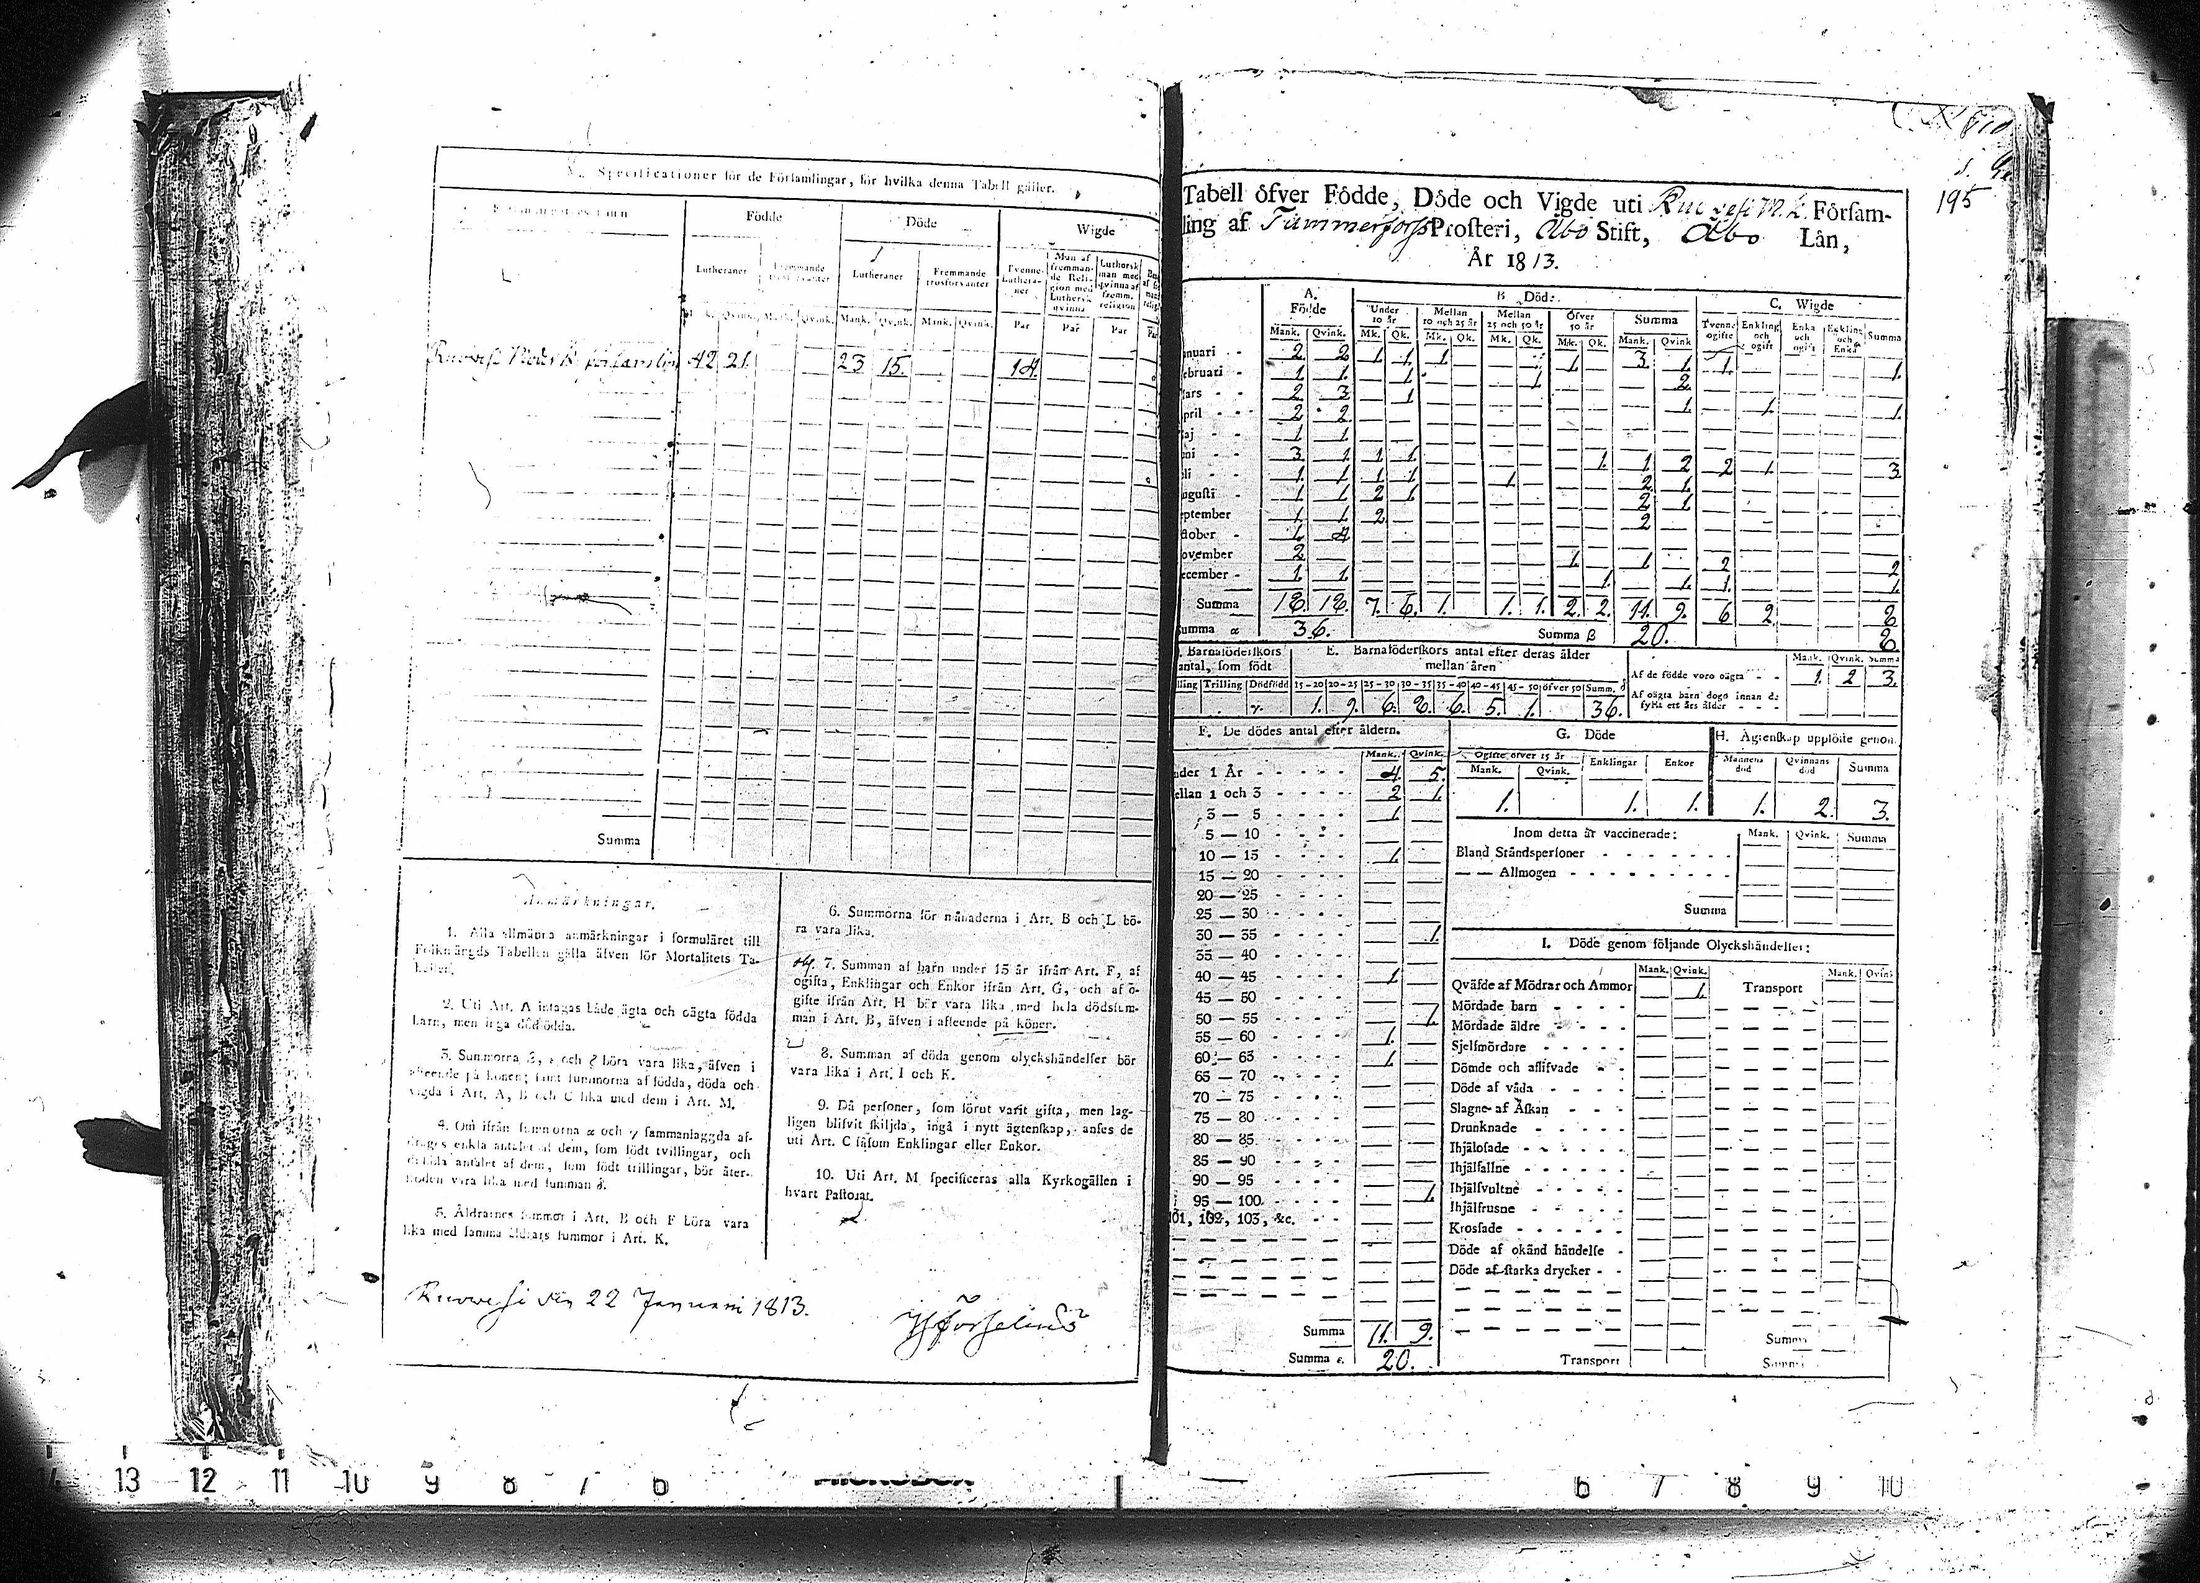 Specificationer för de Församlingar, för hvilka denna Tabell gäller.
Födde Döde Wigde
Lutheraner Fremmande trosförvanter Lutheraner Fremmande trosförvanter Tvenne Lutheraner Man af fremmande Religion med Luthersk qvinna Luthersk man med qvinna af fremm. religion
Qvink. Mank. Qvink. Mank. Qvink. Mank. Qvink. Par Par Par
Ruovesi Moderk. församling 42 21. 23 15. 14.
Summa
Anmärkningar.
1. Alla allmänna anmärkningar i formuläret till
Folkmängds Tabellen gälla äfven för Mortalitets Ta-
beller.
2. Uti Art. A intagas både ägta och oägta födda
barn, men inga dödfödda.
3. Summorna β, ε och ζ böra vara lika, äfven i
afseende på könen; samt summorna af födda, döda och
vigda i Art. A, B och C lika med dem i Art. M.
4. Om ifrån summorna α och γ sammanlaggda af-
drages enkla antalet af dem, som födt tvillingar, och
dubbla antalet af dem, som födt trillingar, bör åter-
stoden vara lika med summan δ.
5. Åldrarnes summor i Art. B och F böra vara
lika med samma åldrars summor i Art. K.
6. Summorna för månaderna i Art. B och L bö-
ra vara lika.
7. Summan af barn under 15 år ifrån Art. F, af
ogifta, Enklingar och Enkor ifrån Art. G, och af
gifte ifrån Art. H bör vara lika med hela dödssum-
man i Art. B, äfven i afseende på könen.
8. Summan af döda genom olyckshändelser bör
vara lika i Art. I och K.
9. Då personer, som förut varit gifta, men lag-
ligen blifvit skiljda, ingå i nytt ägtenskap, anses de
uti Art. C såsom Enklingar eller Enkor.
10. Uti Art. M specificeras alla Kyrkogällen i
hvart Pastorat.
Ruovesi den 22 Januarii 1813.
195
Tabell öfver Födde, Döde och Vigde uti Ruovesi M. K. Försam-
ling af Tammerfors Prosteri, Åbo Stift, Åbo Län,
År 1813.
A. Födde B. Döde C. Wigde
Under 10 år Mellan 10 och 25 år Mellan 25 och 50 år Öfver 50 år Summa Tvenne ogifte Enkling och ogift Enka och ogift Enkling och Enka Summa
Mank. Qvink. Mk. Qk. Mk. Qk. Mk. Qk. Mk. Qk. Mank. Qvink
anuari 2 2 1 1 1 1 3 1 1 1
ebruari 1 1 1 1 2
Mars 2 3 1 1 1 1
pril 2 2
aj 1 1
ni 3 1 1 1 1 1 2 2 1 3
li 1 1 1 1 1 2 1
ugusti 1 1 2 1 2 1
eptember 1 1 2 2
ctober 1 4
ovember 2 1 1 2 2
ecember 1 1 1 1 1 1
Summa 18. 18. 7. 6. 1. 1. 1. 2. 2. 11. 9. 6 2 8
Summa α 36. Summa β 20. 8
Barnaföderskors antal, som födt E. Barnaföderskors antal efter deras ålder mellan åren Mank. Qvink. Summa
lling Trilling Dödfödd 15-20 20-25 25-30 30-35 35-40 40-45 45-50 öfver 50 Summ.
1. 9. 6. 8. 6. 5. 1. 36.
Af de födde voro oägta 1. 2 3.
Af oägta barn dogo innan de
fyllt ett års ålder
F. De dödes antal efter åldern.
Mank. Qvink.
nder 1 År 4 5.
ellan 1 och 3 2 1.
3 — 5 1
5 — 10
10 — 15 1.
15 — 20
20 — 25
25 — 30
30 — 35 1.
35 — 40
40 — 45 1
45 — 50
50 — 55 1.
55 — 60 1.
60 — 65 1.
65 — 70
70 — 75
75 — 80
80 — 85
85 — 90
90 — 95
95 — 100. 1.
101, 102, 103, &c.
Summa 11. 9.
Summa ε. 20.
G. Döde
Ogifte öfver 15 år Enklingar Enkor
Mank. Qvink.
1. 1. 1.
H. Ägtenskap upplöste genom
Mannens död Qvinnans död Summa
1. 2. 3.
Inom detta år vaccinerade: Mank. Qvink. Summa
Bland Ståndspersoner
— — Allmogen
Summa
I. Döde genom följande Olyckshändelser:
Mank. Qvink. Mank. Qvink
Qväfde af Mödrar och Ammor 1. Transport
Mördade barn
Mördade äldre
Sjelfmördare
Dömde och aflifvade
Döde af våda
Slagne af Åskan
Drunknade
Ihjälosade
Ihjälfallne
Ihjälsvultne
Ihjälfrusne
Krossade
Döde af okänd händelse
Döde af starka drycker
Summa
Transport Summa
13 12 11 10 9 8 7 6 6 7 8 9 10